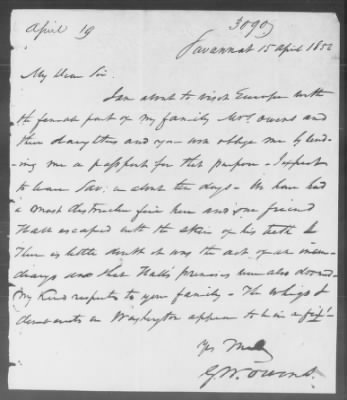 April 19
3090
Savannah 15 April 1852
My Dear Sir
I am about to visit Europe with
the female part of my family Mrs. Owens and
three daughters and you would oblige me by send-
ing me a passport for that purpose - I expect
to leave Sav: in about ten days - We have had
a most destructive fire here and our friend
Hall escaped with the skin of his teeth &
There is little doubt it was the act of an incen-
diary and that Hall's premises were also doomed -
My Kind respects to your family - The whigs &
democrats in Washington appear to be in a fix! -
Yrs Truly
G W. Owens.